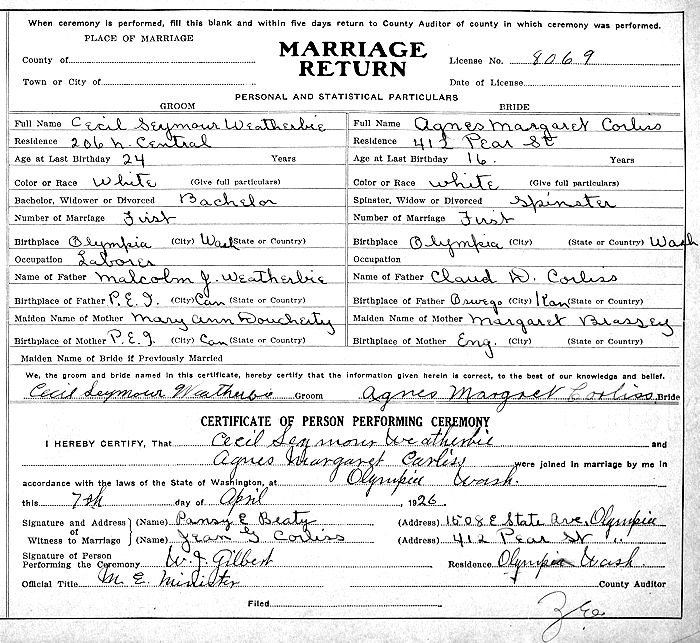 When ceremony is performed, fill this blank and within five days return to County Auditor of county in which ceremony was performed.
PLACE OF MARRIAGE
MARRIAGE RETURN
County of
License No. 8069
Town or City of
Date of License
PERSONAL AND STATISTICAL PARTICULARS
GROOM BRIDE
Full Name Cecil Seymour Weatherbie Full Name Agnes Margaret Corliss
Residence 206 N. Central Residence 412 Pear St
Age at Last Birthday 24 Years Age at Last Birthday 16. Years
Color or Race White (Give full particulars) Color or Race white (Give full particulars)
Bachelor, Widower or Divorced Bachelor Spinster, Widow or Divorced Spinster
Number of Marriage First Number of Marriage First
Birthplace Olympia (City) Wash (State or Country) Birthplace Olympia (City) (State or Country) Wash
Occupation Laborer Occupation
Name of Father Malcolm J. Weatherbie Name of Father Claud D. Corliss
Birthplace of Father P.E.I. (City) Can (State or Country) Birthplace of Father Oswego (City) Kan (State or Country)
Maiden Name of Mother Mary Ann Doucherty Maiden Name of Mother Margaret Brassey
Birthplace of Mother P.E.I. (City) Can (State or Country) Birthplace of Mother Eng. (City) (State or Country)
Maiden Name of Bride if Previously Married
We, the groom and bride named in this certificate, hereby certify that the information given herein is correct, to the best of our knowledge and belief.
Cecil Seymour Weatherbie Groom Agnes Margret Corliss Bride
CERTIFICATE OF PERSON PERFORMING CEREMONY
I HEREBY CERTIFY, That Cecil Seymour Weatherbie and
Agnes Margaret Carliss were joined in marriage by me in
accordance with the laws of the State of Washington, at Olympia Wash.
this 7th day of April, 1926.
Signature and Address of Witness to Marriage
(Name) Pansy E Beaty (Address) 1508 E State Ave, Olympia
(Name) Jean G Corliss (Address) 412 Pear St "
Signature of Person Performing the Ceremony W. J. Gilbert Residence Olympia Wash.
Official Title M. E. Minister County Auditor
Filed